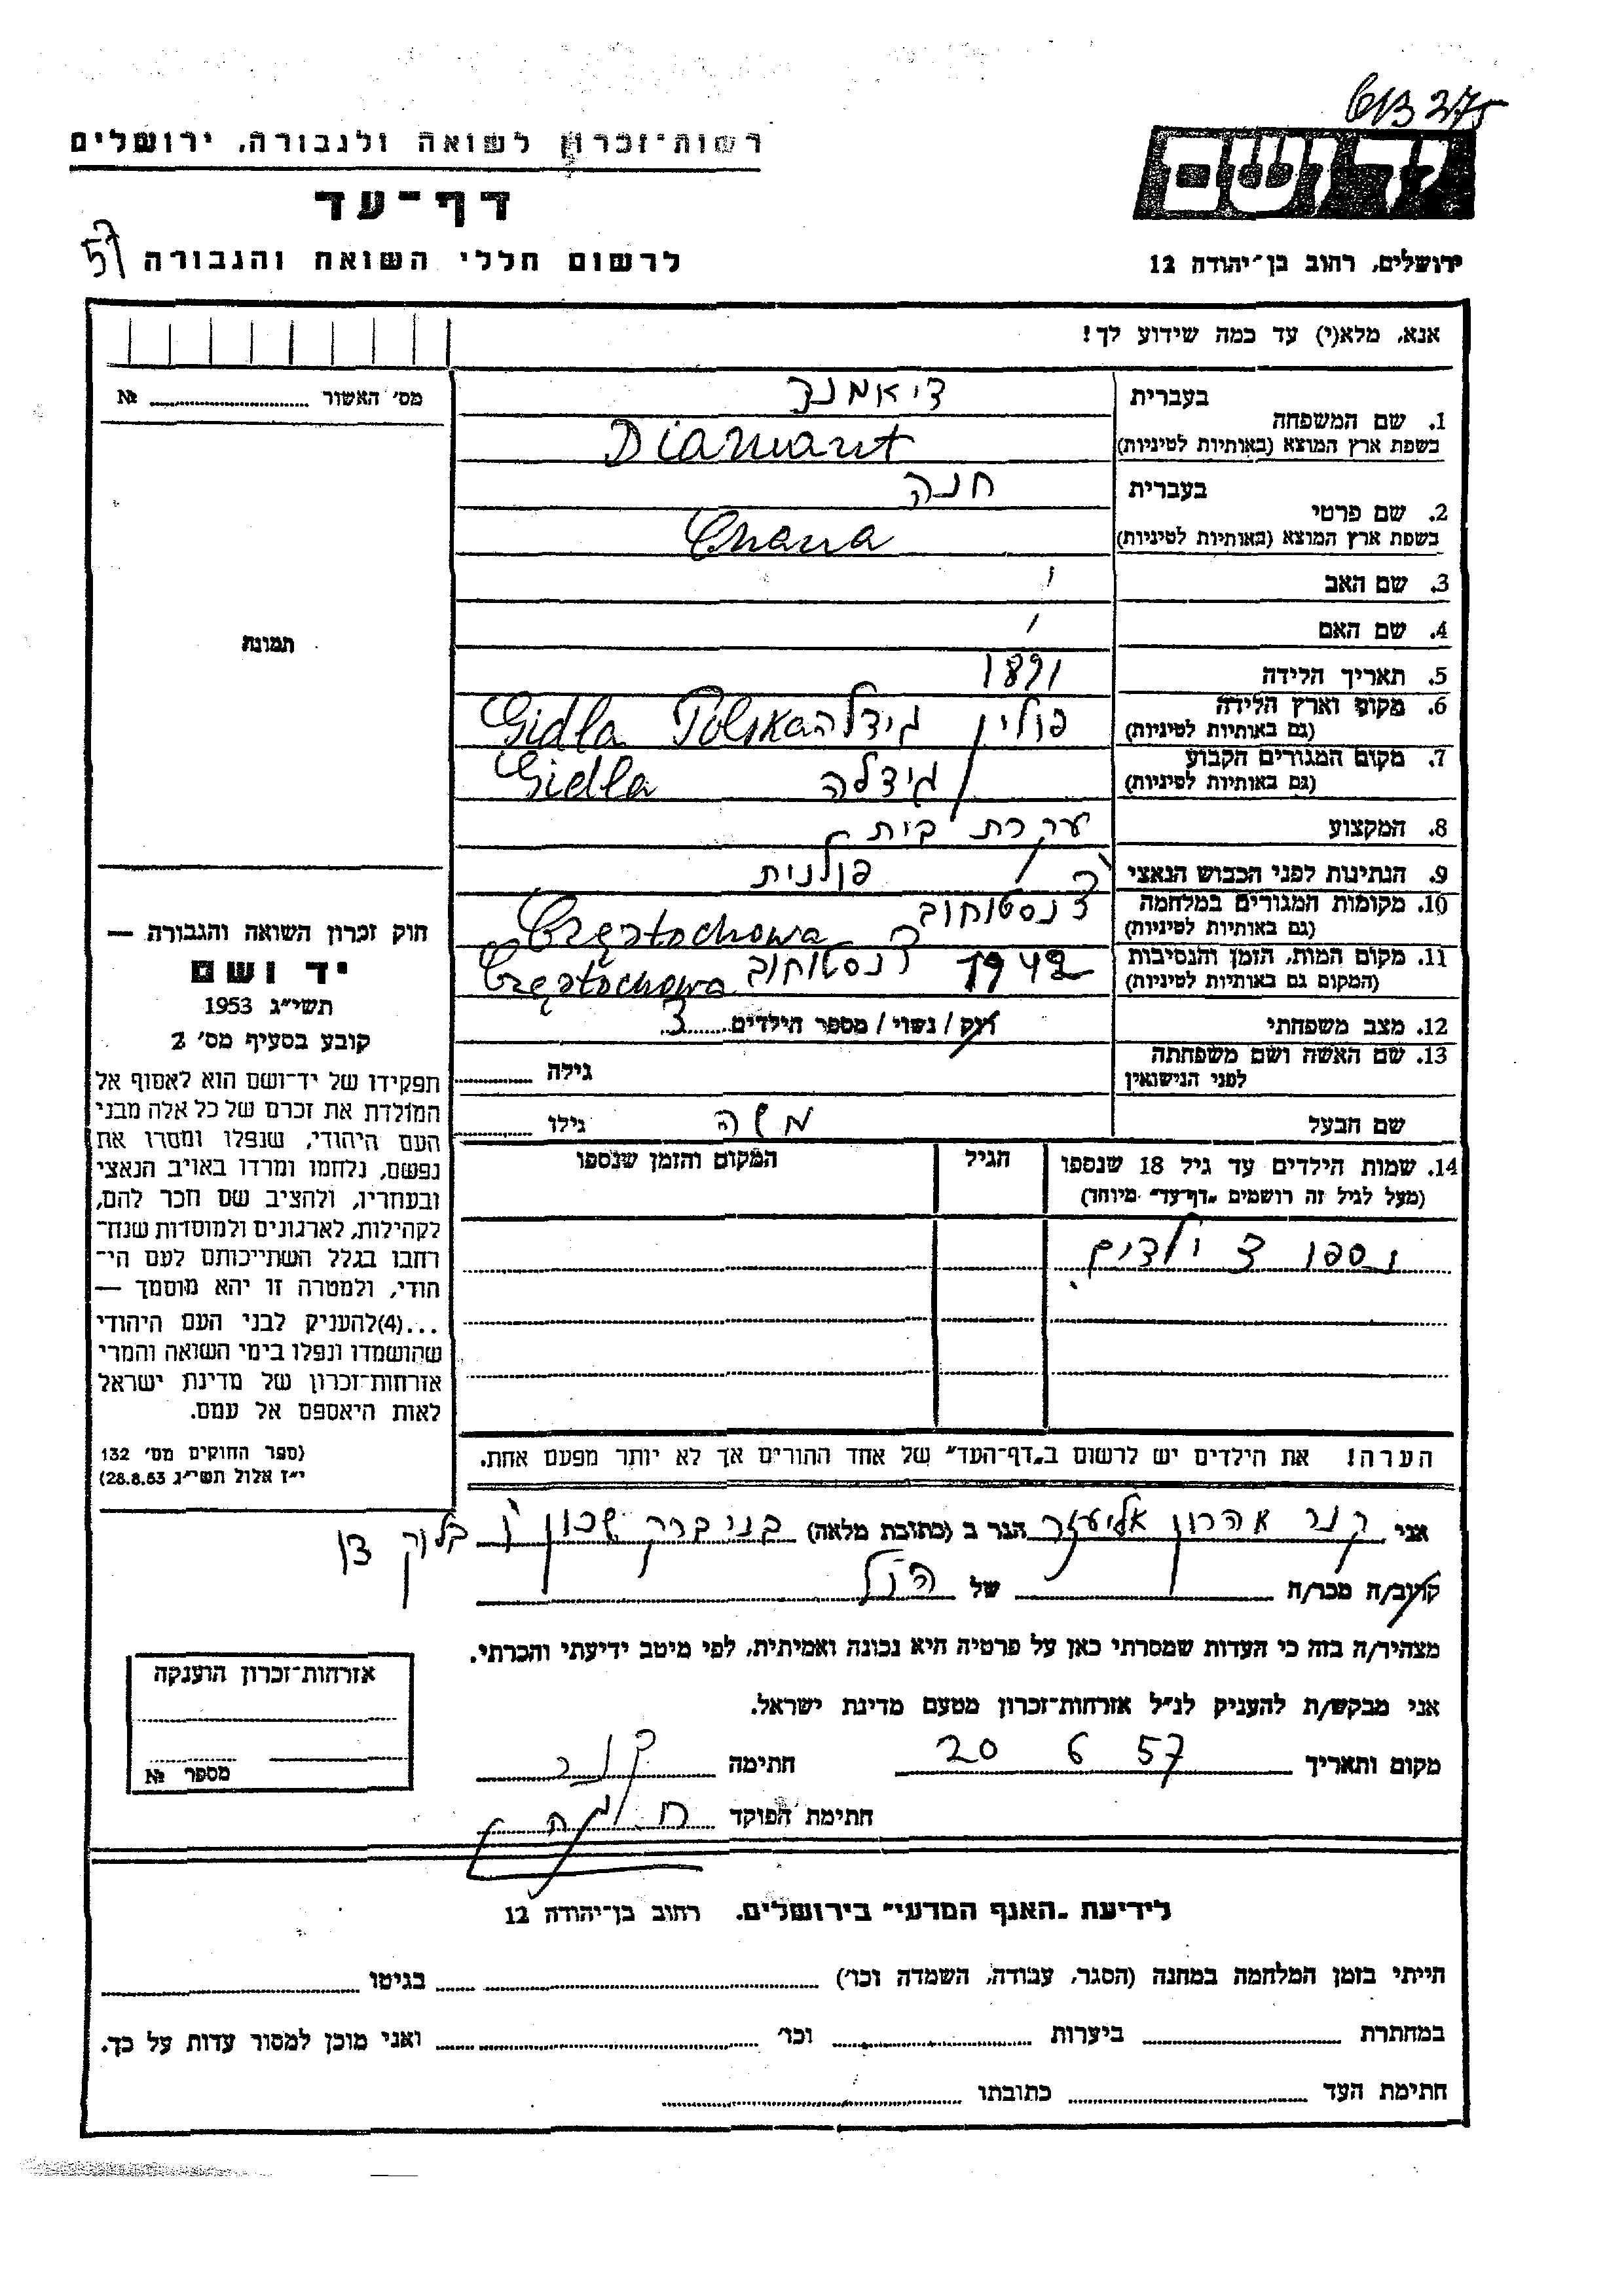 275
רשות־זכרון לשואה ולגבורה, ירושלים
דף־עד
57
לרשום חללי השואה והגבורה
ידושם
ירושלים, רחוב בן־יהודה 12
אנא, מלא(י) עד כמה שידוע לך!
מס׳ האשור № 
בעברית דיאמנד
1. שם המשפחה
בשפת ארץ המוצא (באותיות לטיניות) Diamant
בעברית חנה
2. שם פרטי
בשפת ארץ המוצא (באותיות לטיניות) Chana
3. שם האב
4. שם האם
5. תאריך הלידה 1891
6. מקום וארץ הלידה פולין גידלה Polska Gidla
(גם באותיות לטיניות)
7. מקום המגורים הקבוע גידלה Gidla
(גם באותיות לטיניות)
8. המקצוע עקרת בית
9. הנתינות לפני הכבוש הנאצי פולנית
10. מקומות המגורים במלחמה צ'נסטוחוב Częstochowa
(גם באותיות לטיניות)
11. מקום המות, הזמן והנסיבות 1942 צ'נסטוחוב Częstochowa
(המקום גם באותיות לטיניות)
12. מצב משפחתי רוק / נשוי / מספר הילדים 3
13. שם האשה ושם משפחתה
לפני הנישואין גילה
שם הבעל משה גילו
14. שמות הילדים עד גיל 18 שנספו הגיל המקום והזמן שנספו
(מעל לגיל זה רושמים „דף־עד” מיוחד)
נספו 3 ילדים
תמונה
חוק זכרון השואה והגבורה —
יד ושם
תשי״ג 1953
קובע בסעיף מס׳ 2
תפקידו של יד־ושם הוא לאסוף אל
המולדת את זכרם של כל אלה מבני
העם היהודי, שנפלו ומסרו את
נפשם, נלחמו ומרדו באויב הנאצי
ובעוזריו, ולהציב שם וזכר להם,
לקהילות, לארגונים ולמוסדות שנח־
רחבו בגלל השתייכותם לעם הי־
הודי, ולמטרה זו יהא מוסמך —
...(4)להעניק לבני העם היהודי
שהושמדו ונפלו בימי השואה והמרי
אזרחות־זכרון של מדינת ישראל
לאות היאספם אל עמם.
(ספר החוקים מס׳ 132
י״ז אלול תשי״ג 28.8.53)
הערה! את הילדים יש לרשום ב„דף־העד” של אחד ההורים אך לא יותר מפעם אחת.
אני קנר אהרון אליעזר הגר ב (כתובת מלאה) בני ברק שכון ו' בלוק 31
קרוב/ה מכר/ה של הנ"ל
מצהיר/ה בזה כי העדות שמסרתי כאן על פרטיה היא נכונה ואמיתית, לפי מיטב ידיעתי והכרתי.
אני מבקש/ת להעניק לנ״ל אזרחות־זכרון מטעם מדינת ישראל.
מקום ותאריך 20 6 57 חתימה קנר
חתימת הפוקד
אזרחות־זכרון הוענקה
מספר №
לידיעת „האגף המדעי” בירושלים. רחוב בן־יהודה 12
הייתי בזמן המלחמה במחנה (הסגר, עבודה, השמדה וכו׳) בגיטו
במחתרת ביערות וכו׳ ואני מוכן למסור עדות על כך.
חתימת העד כתובתו